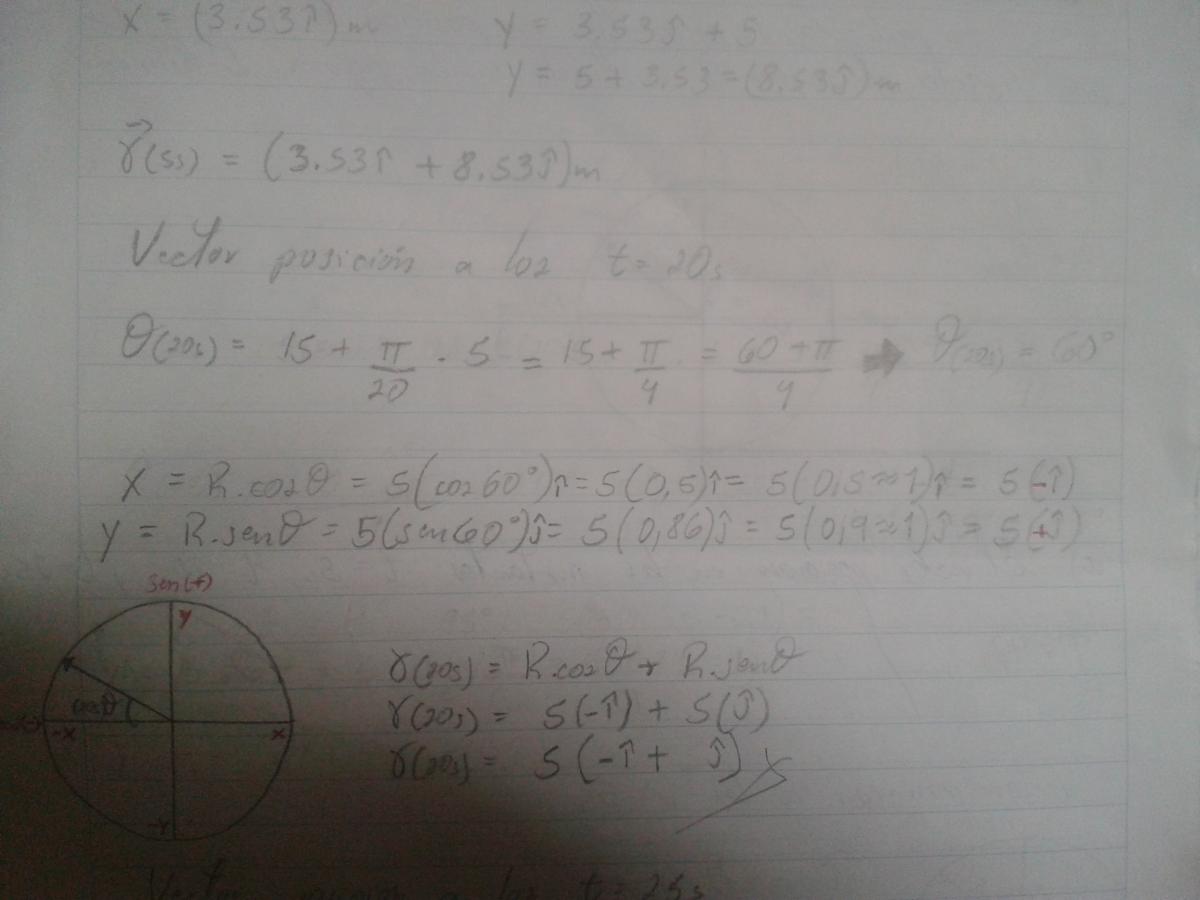 x = (3.53î) m
y = 3.53ĵ + 5
y = 5 + 3.53 = (8.53ĵ) m
r⃗(5s) = (3.53î + 8.53ĵ) m
Vector posición a los t = 20s
θ(20s) = 15 + π/20 · 5 = 15 + π/4 = 60+π/4 ➡ θ(20s) = 60°
x = R.cosθ = 5(cos60°)î = 5(0,5)î = 5(0,5≈1)î = 5(-î)
y = R.senθ = 5(sen60°)ĵ = 5(0,86)ĵ = 5(0,9≈1)ĵ = 5(+ĵ)
sen(+)
y
cosθ
-x
x
-y
r(20s) = R.cosθ + R.senθ
r(20s) = 5(-î) + 5(ĵ)
r(20s) = 5(-î + ĵ)
Vector posición a los t = 25s